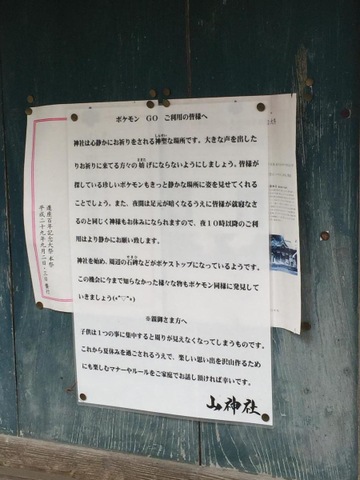 ポケモン GO ご利用の皆様へ
神社は心静かにお祈りをされる神聖な場所です。大きな声を出した
りお祈りに来てる方々の妨げにならないようにしましょう。皆様が
探している珍しいポケモンもきっと静かな場所に姿を見せてくれる
ことでしょう。また、夜間は足元が暗くなるうえに皆様が就寝なさ
るのと同じく神様もお休みになられますので、夜10時以降のご利
用はより静かにお願い致します。
神社を始め、周辺の石碑などがポケストップになっているようです。
この機会に今まで知らなかった様々な物もポケモン同様に発見して
いきましょう(*^▽^*)
※親御さま方へ
子供は1つの事に集中すると周りが見えなくなってしまうものです。
これから夏休みを過ごされるうえで、楽しい思い出を沢山作るため
にも楽しむマナーやルールをご家庭でお話し頂ければ幸いです。
山神社
遷座百年記念大祭 本祭
平成二十九年九月二日・三日 斎行